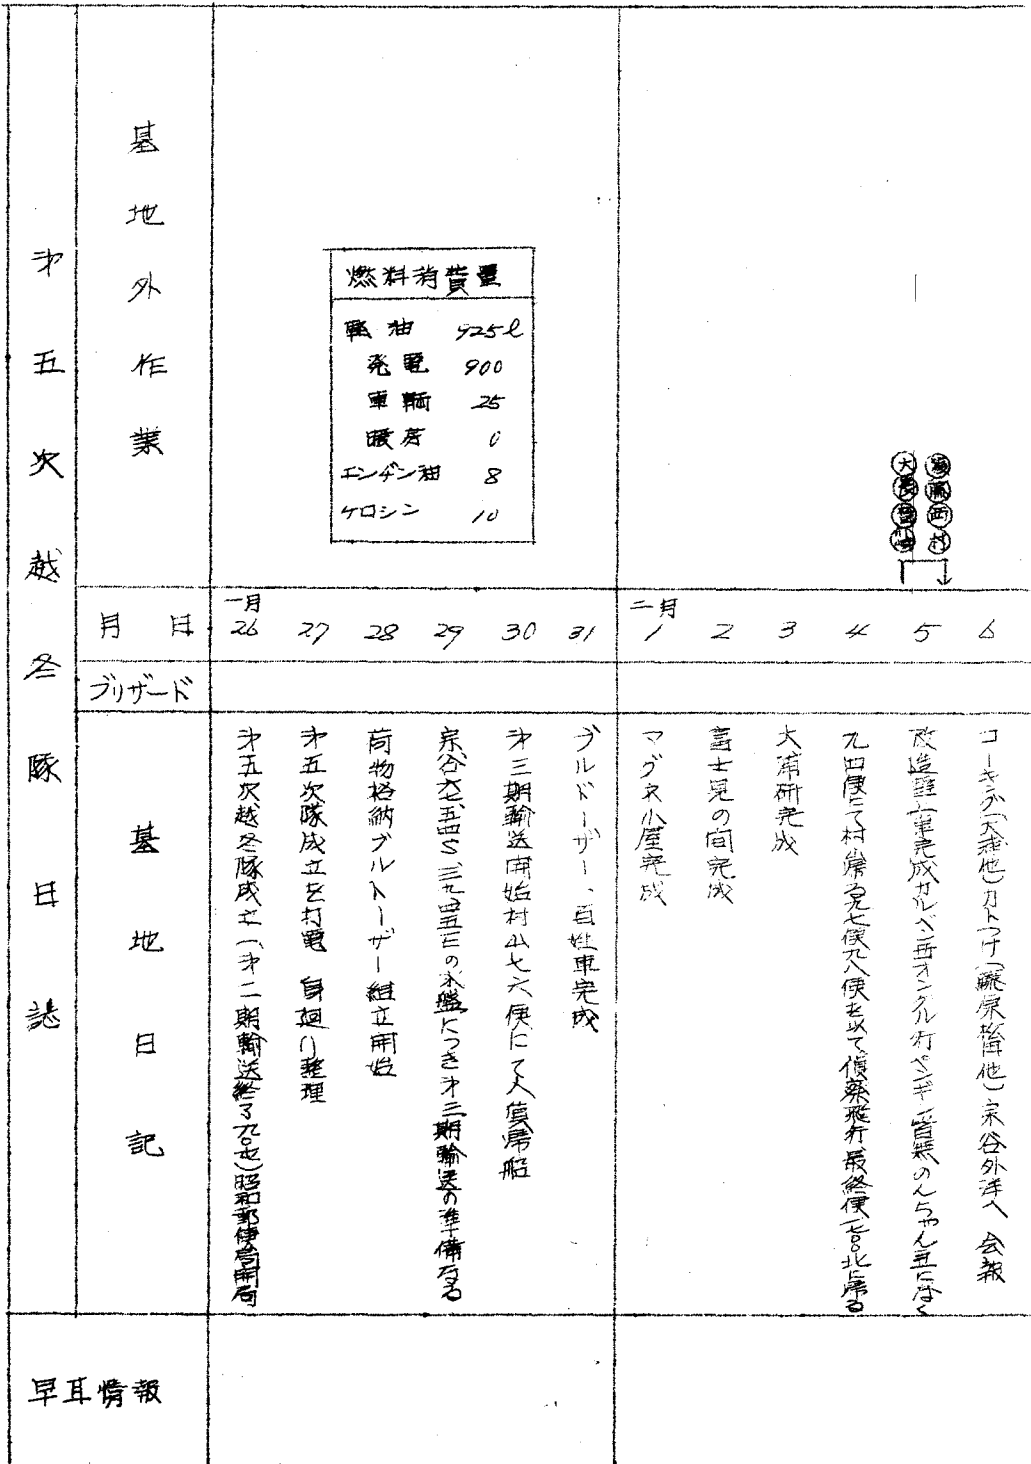 才五次越冬隊日誌
基地外作業
燃料消費量
軽油 925ℓ
発電 900
車輌 25
暖房 0
エンヂン油 8
ケロシン 10
大
村
月日
一月
26 27 28 29 30 31
二月
1 2 3 4 5 6
ブリザード
基地日記
才五次越冬隊成立(才二期輸送終了九〇屯)昭和郵便局開局
才五次隊成立を打電 身廻り整理
荷物格納ブルトーザー組立開始
宗谷 の氷盤につき才三期輸送の準備なる
才三期輸送開始村山七六便にて人員帰船
ブルドーザー、百姓車完成
マグネ小屋完成
富士見の間完成
大浦研完成
九四便にて村山帰る九七便九八便を以て偵察飛行、最終便 北に帰る
改造 完成カルベン再オンクル行ペンギン のんちゃん
コーキング(大浦他)カトつけ( 他)宗谷外洋へ 会報
早耳情報